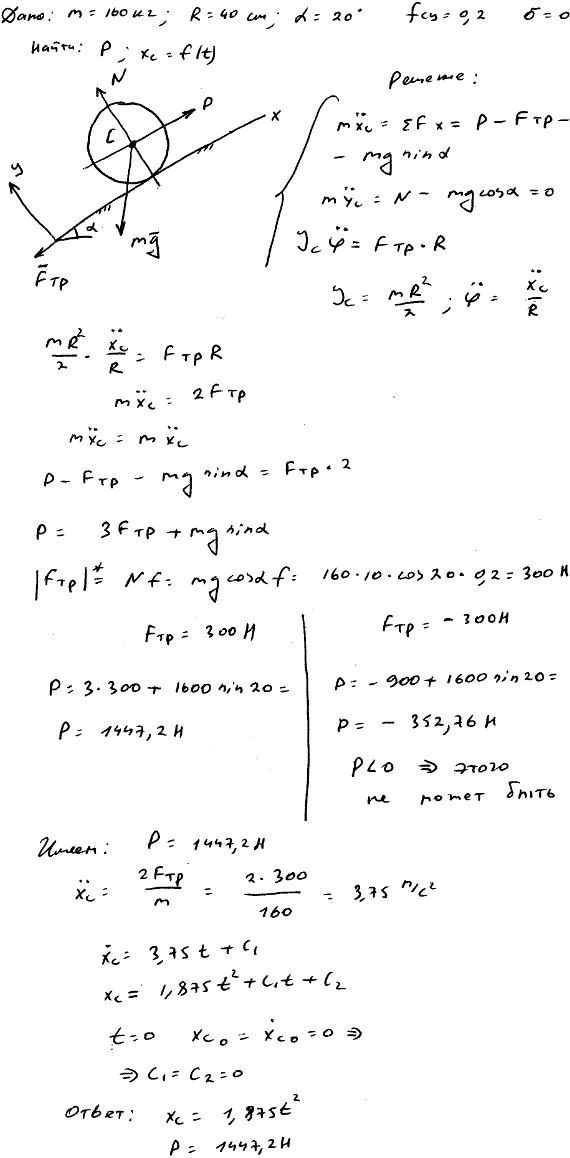 Дано: m = 160 кг; R = 40 см; α = 20° fсц = 0,2 δ = 0
Найти: P; xc = f(t)
N
P
C
x
y
α
mg̅
F̅тр
Решение:
mẍc = ΣFx = P − Fтр −
− mg sinα
mÿc = N − mg cosα = 0
Jc φ̈ = Fтр · R
Jc = mR²/2 ; φ̈ = ẍc/R
mR²/2 · ẍc/R = Fтр R
mẍc = 2Fтр
mẍc = mẍc
P − Fтр − mg sinα = Fтр · 2
P = 3Fтр + mg sinα
|Fтр|* = Nf = mg cosα f = 160·10·cos20·0,2 = 300 Н
Fтр = 300 Н
P = 3·300 + 1600 sin20 =
P = 1447,2 Н
Fтр = −300 Н
P = −900 + 1600 sin20 =
P = −352,76 Н
P<0 ⇒ этого
не может быть
Имеем: P = 1447,2 Н
ẍc = 2Fтр/m = 2·300/160 = 3,75 м/с²
ẋc = 3,75t + C₁
xc = 1,875t² + C₁t + C₂
t=0 xc₀ = ẋc₀ = 0 ⇒
⇒ C₁ = C₂ = 0
Ответ: xc = 1,875t²
P = 1447,2 Н